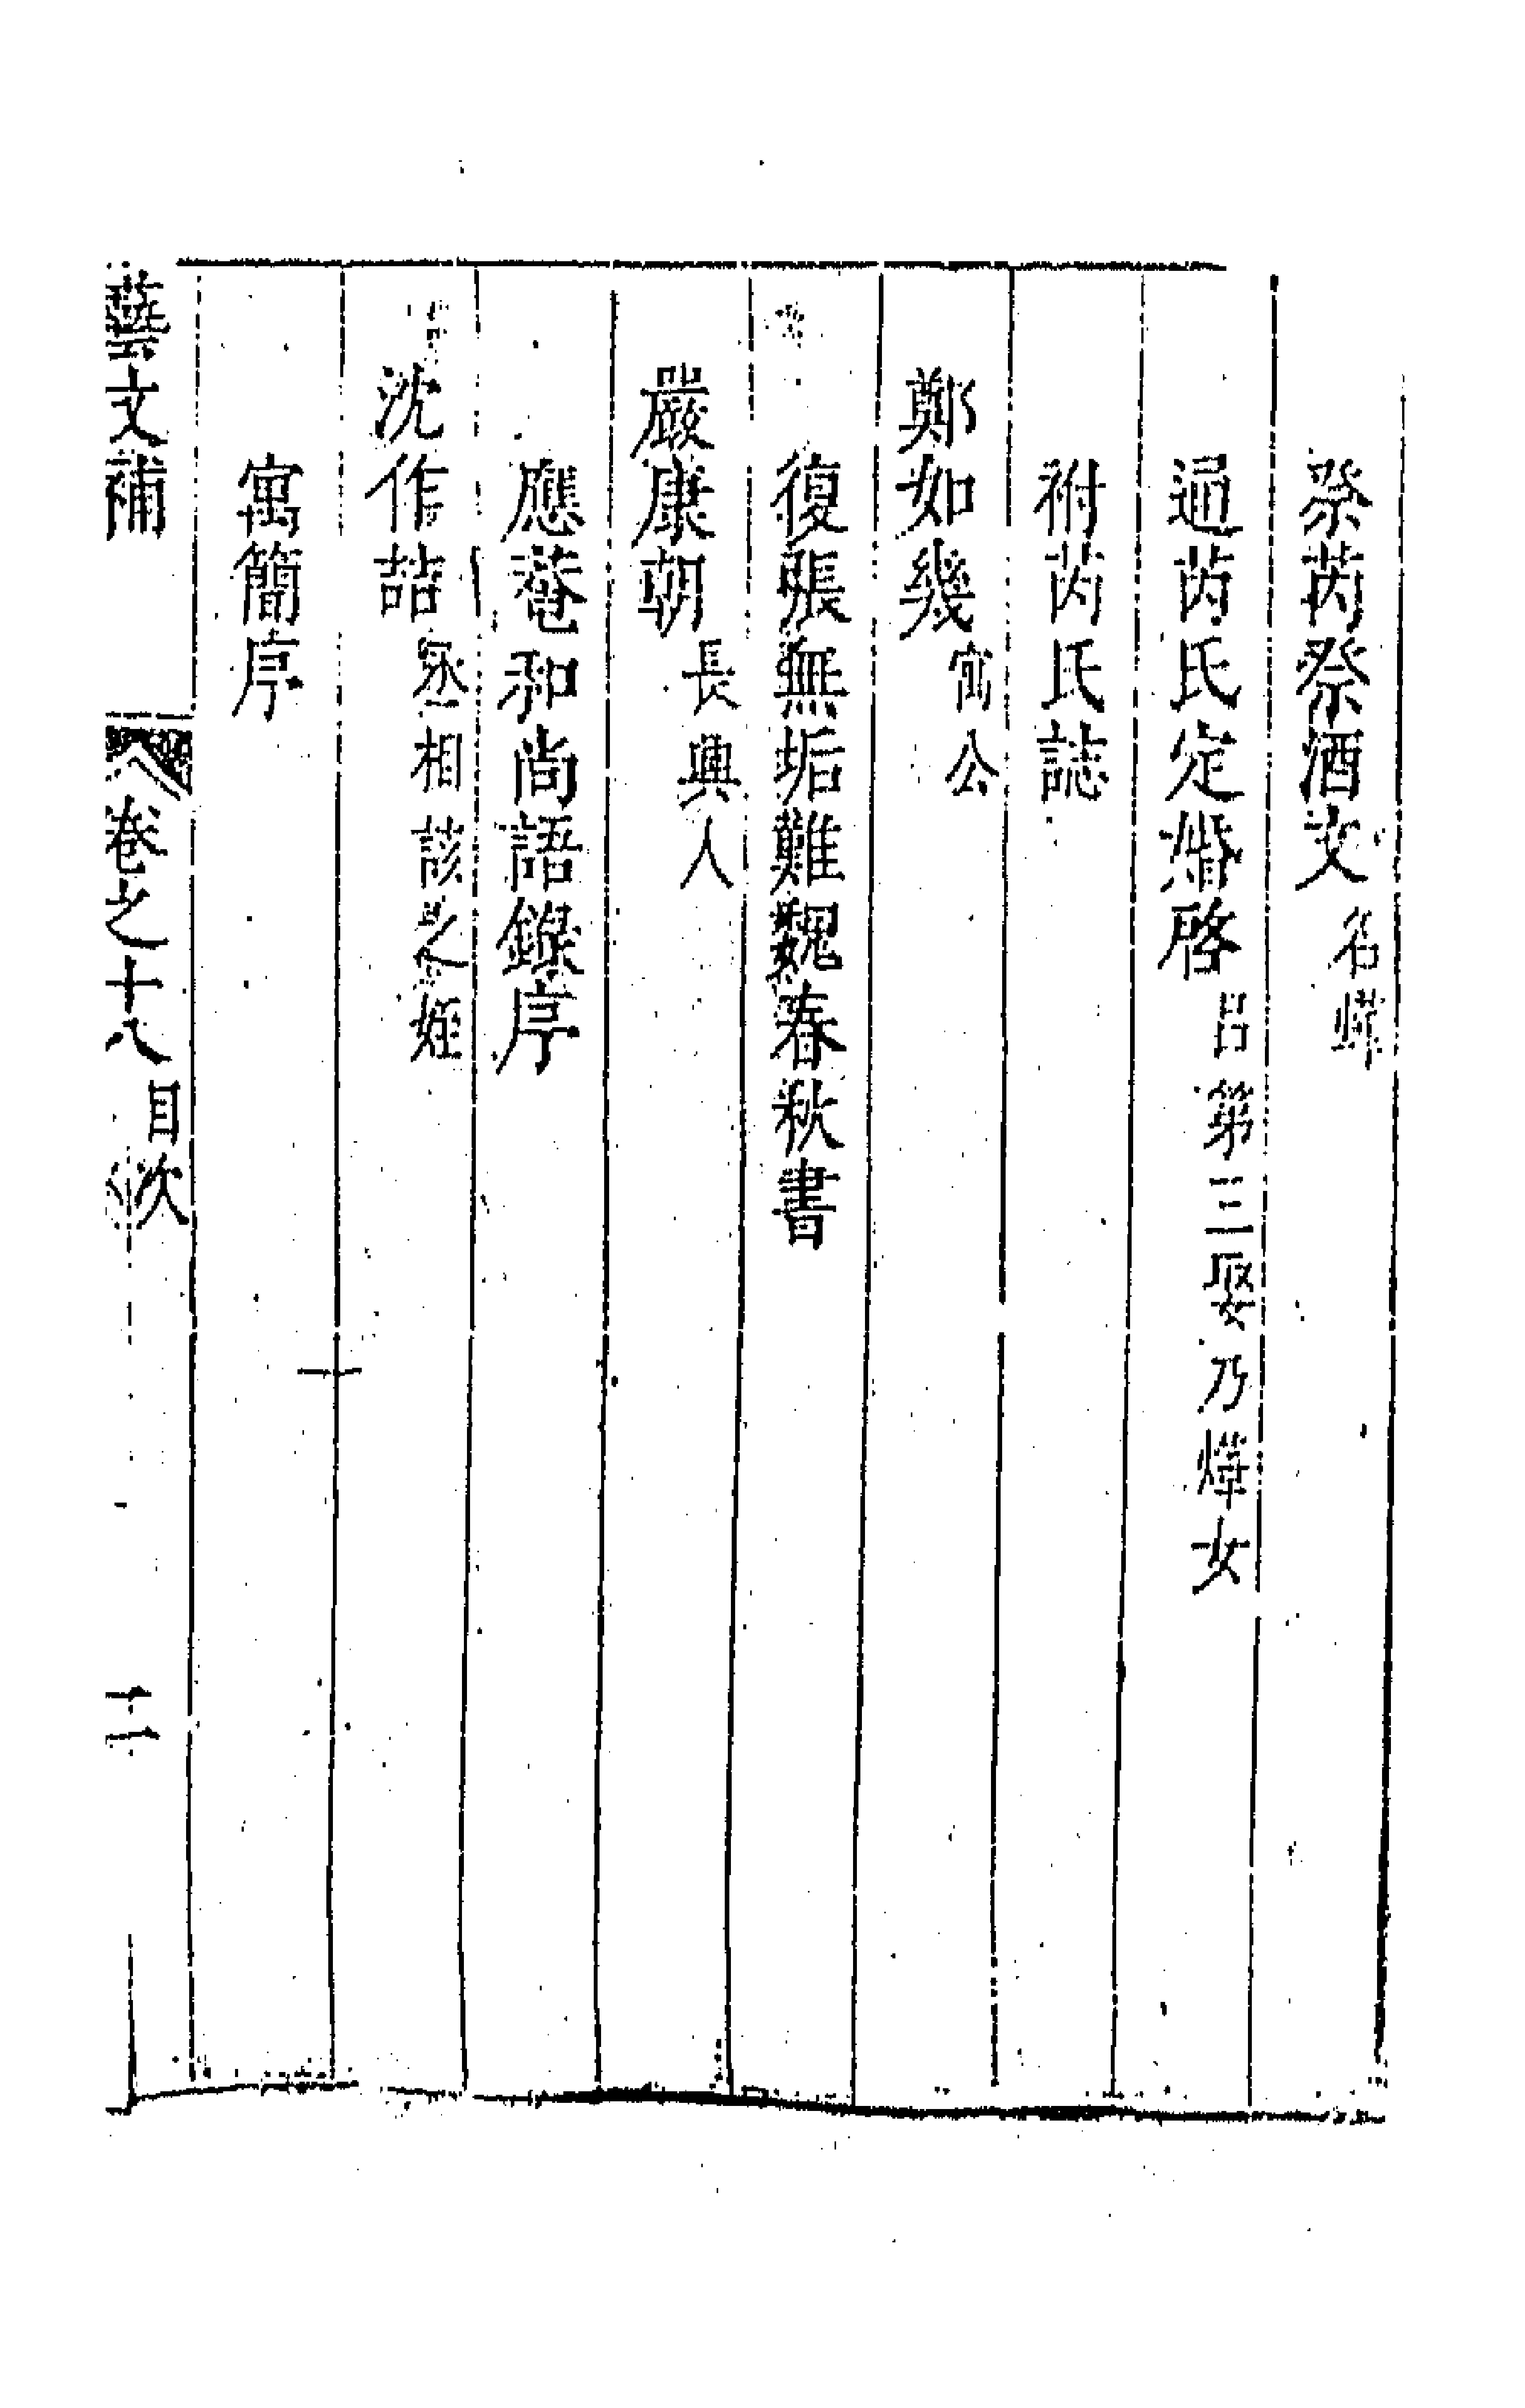 祭芮祭酒文名燁
通芮氏定婚啓呂第三娶乃燁女
祔芮氏誌
鄭如幾寓公
復張無垢難魏春秋書
嚴康朝長興人
應菴和尚語錄序
沈作喆丞相該之姪
寓簡序
藝文補 卷之十八目次 十二